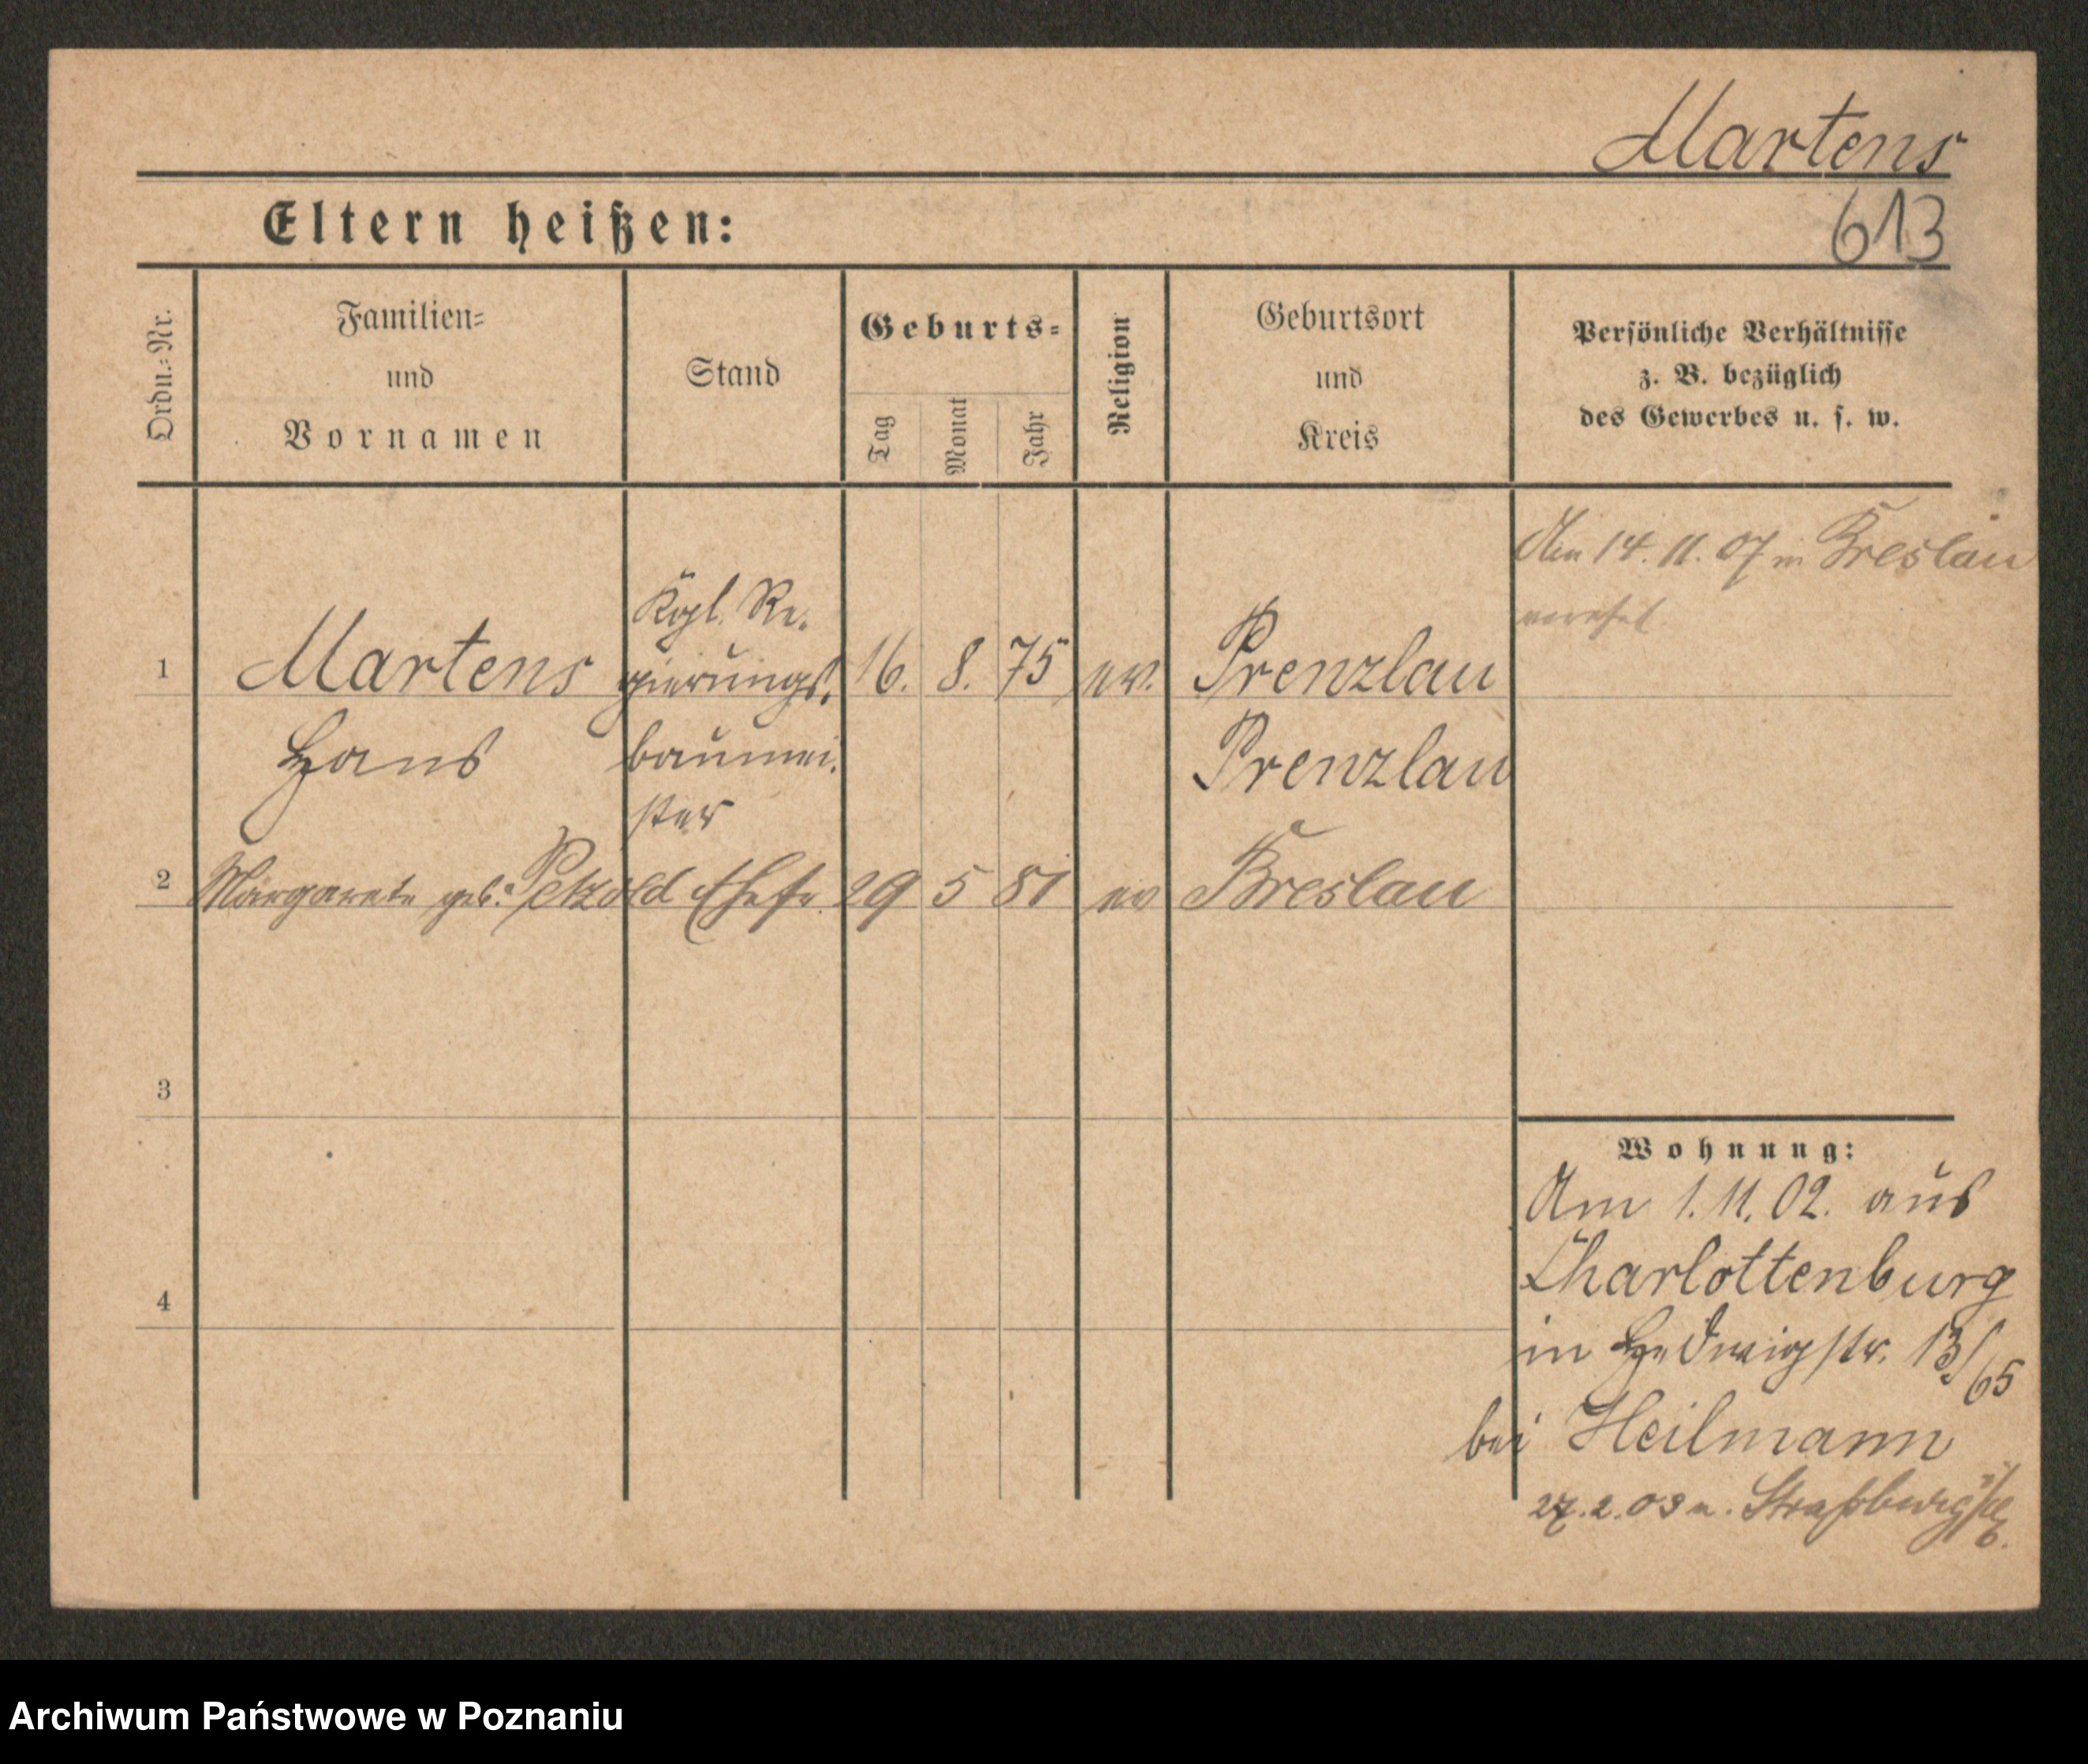 Martens
613
Eltern heißen:
Ordn.-Nr.
Familien=
und
Vornamen
Stand
Geburts=
Tag
Monat
Jahr
Religion
Geburtsort
und
Kreis
Persönliche Verhältnisse
z. B. bezüglich
des Gewerbes u. s. w.
Am 14. 11. 07 in Breslau
verehel.
1 Martens Kgl. Re- 16. 8. 75 ev. Prenzlau
gierungs-
Hans baumei- Prenzlau
ster
2 Margarete geb. Petzold Ehefr. 29 5 81 ev Breslau
3
4
Wohnung:
Am 1. 11. 02. aus
Charlottenburg
in Hedwigstr. 13/65
bei Heilmann
27. 2. 03 n. Straßburg
Archiwum Państwowe w Poznaniu